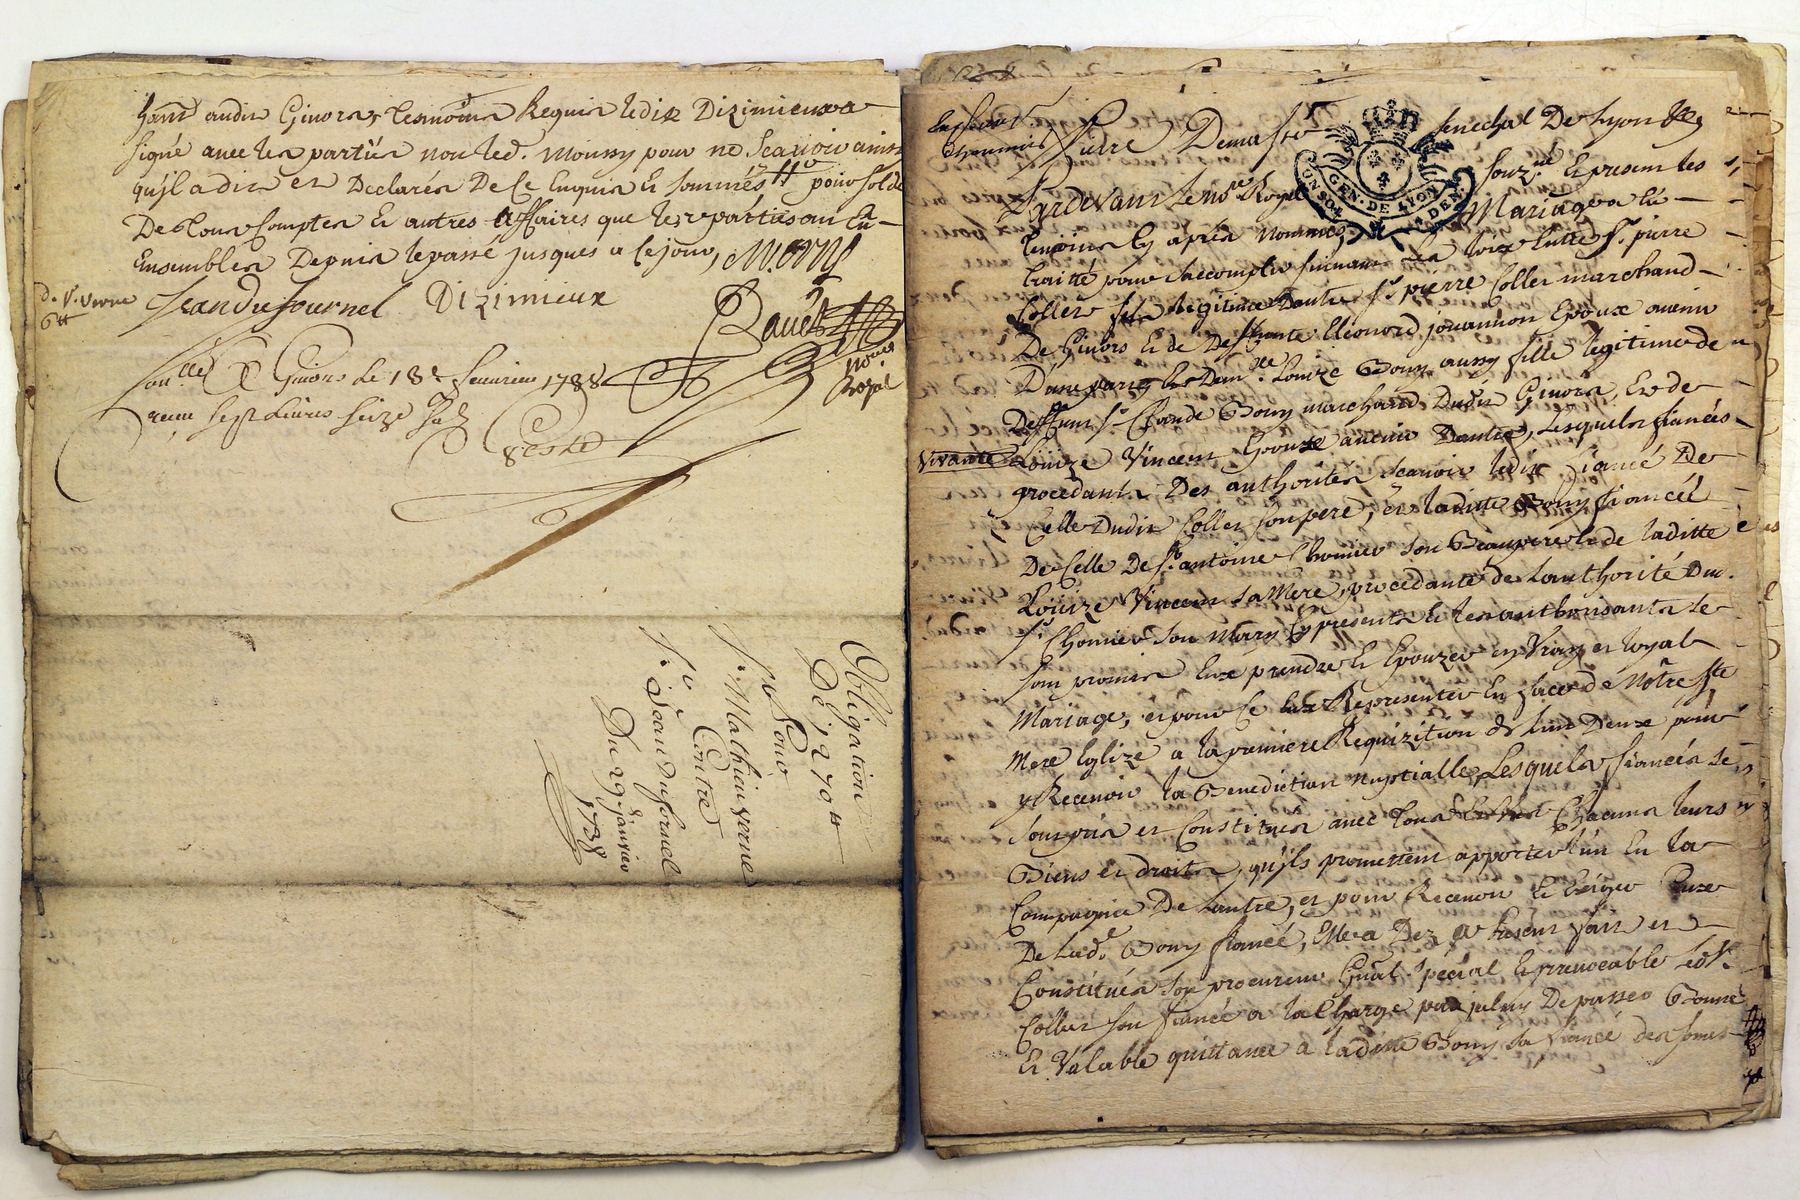 hant audit Givors, tesmoins Requis ledit Dizimieux a
signé avec les parties non led. Moussy pour ne Scavoir ainsi
qu'il a dit et Declaré De ce Enquis et sommés pour solde
De tous Comptes et autres Affaires que les parties ont Eu
Ensembles Depuis le passé jusques a ce jour,
d. V. Verne
Jean dufournel Dizimieux
No.re Royal
Con.llé a Givors le 18e fevrier 1738
receu sept Livres seize sols
Obligation
De 1270 tt
Pour
Sr. Mathieu verne
Contre
Sr. Jean Dufornel
Du 29e janvier
1738
Pierre Demasso Senechal De Lyon
GEN. DE LYON
Pardevant le no.re Royal Souz.né Et presents les
temoins cy après nommés, Mariage a été
traitté pour s'accomplir suivant La loix Entre Sr. pierre
Coller fils legitime D'autre Sr. pierre Coller marchand
De Givors Et de Deffunte Eleonord jouannon Epoux avenir
D'une part, Et Dem.lle Louize Bony aussy fille legitime de
Deffunt Sr. Claude Bony marchand Dudit Givors, Et de
vivante Loüize Vincent Epouze avenir D'autre, Lesquels fiancés
procedants Des authorités scavoir ledit fiancé De
Celle Dudit Coller son pere, et laditte Bony fiancée
De Celle De Sr. antoine Chomier son Beaupere Et de laditte
Loüize Vincent sa Mere, procedante de l'authorité Du.
Sr. Chomier son Mary Cy presents Et les authorisants se
sont promis Eux prendre Et Epouzer en Vray et loyal
Mariage, et pour Ce Eux Representer En face de Nôtre Ste
Mere Eglize a la premiere Requizition de l'un D'eux pour
y Recevoir la Benediction Nuptialle, Lesquels fiancés se
sont pris et Constitués avec tous Et Chacuns leurs
Biens et droits, qu'ils promettent apporter l'un En la
Compagnie De l'autre, et pour Recevoir Et Exiger Ceux
De Lad.e Bony fiancée, Elle a Dez a Present fait et
Constitué son procureur G'ñal special Et irrevocable led. Sr.
Coller son fiancé a la Charge par iceluy De passer Bonne
Et Valable quittance a laditte Bony sa fiancée des somes